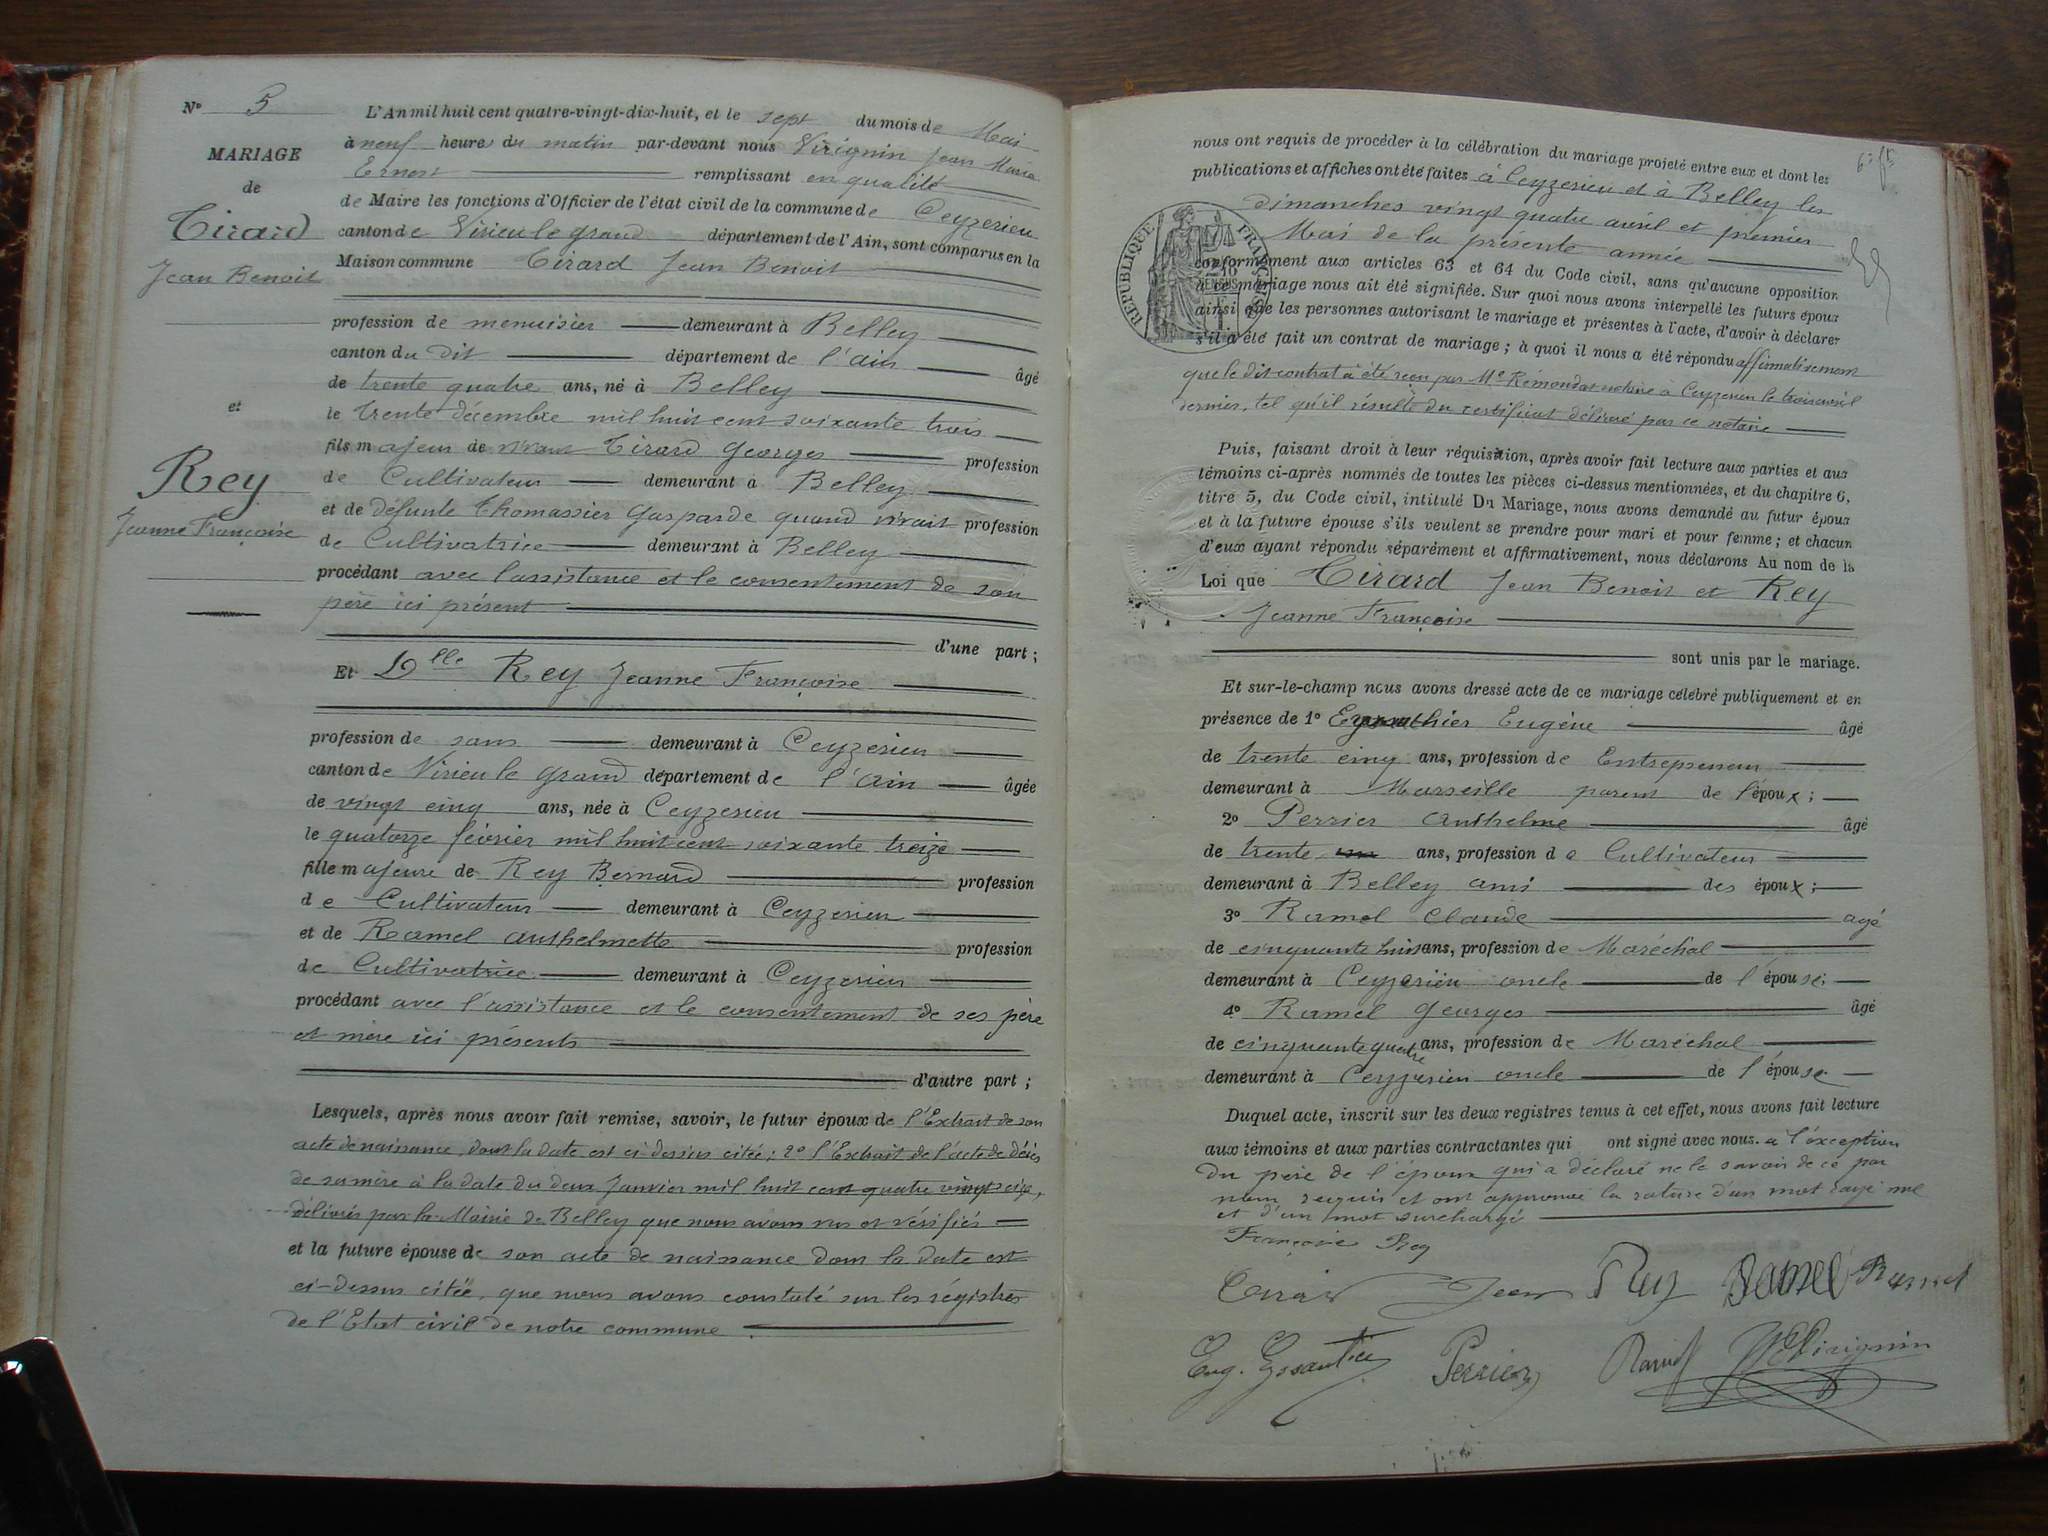 N° 5
MARIAGE
de
Tirard
Jean Benoit
et
Rey
Jeanne Françoise
L'An mil huit cent quatre-vingt-dix-huit, et le sept du mois de Mai
à neuf heures du matin par-devant nous Virignin Jean Marie
Ernest remplissant en qualité
de Maire les fonctions d'Officier de l'état civil de la commune de Ceyzerieu
canton de Virieu le grand département de l'Ain, sont comparus en la
Maison commune Tirard Jean Benoit
profession de menuisier demeurant à Belley
canton du dit département de l'ain âgé
de trente quatre ans, né à Belley
le trente décembre mil huit cent soixante trois
fils majeur de vivant Tirard Georges profession
de Cultivateur demeurant à Belley
et de défunte Thomassier Gasparde quand vivait profession
de Cultivatrice demeurant à Belley
procédant avec l'assistance et le consentement de son
père ici présent
d'une part;
Et Dlle Rey Jeanne Françoise
profession de sans demeurant à Ceyzerieu
canton de Virieu le grand département de l'ain âgée
de vingt cinq ans, née à Ceyzerieu
le quatorze février mil huit cent soixante treize
fille majeure de Rey Bernard profession
de Cultivateur demeurant à Ceyzerieu
et de Ramel Anthelmette profession
de Cultivatrice demeurant à Ceyzerieu
procédant avec l'assistance et le consentement de ses père
et mère ici présents
d'autre part;
Lesquels, après nous avoir fait remise, savoir, le futur époux de l'Extrait de son
acte de naissance, dont la date est ci-dessus citée; 2° l'Extrait de l'acte de décès
de sa mère à la date du deux Janvier mil huit cent quatre vingt seize,
délivrés par la Mairie de Belley que nous avons vus et vérifiés
et la future épouse de son acte de naissance dont la date est
ci-dessus citée, que nous avons constaté sur les régistres
de l'Etat civil de notre commune
nous ont requis de procéder à la célébration du mariage projeté entre eux et dont les
publications et affiches ont été faites à Ceyzerieu et à Belley les
dimanches vingt quatre avril et premier
Mai de la présente année
RÉPUBLIQUE FRANÇAISE
conformément aux articles 63 et 64 du Code civil, sans qu'aucune opposition
à ce mariage nous ait été signifiée. Sur quoi nous avons interpellé les futurs époux
ainsi que les personnes autorisant le mariage et présentes à l'acte, d'avoir à déclarer
s'il a été fait un contrat de mariage; à quoi il nous a été répondu affirmativement
que le dit contrat a été reçu par Me Rémondat notaire à Ceyzerieu le trois avril
dernier, tel qu'il résulte du certificat délivré par ce notaire
Puis, faisant droit à leur réquisition, après avoir fait lecture aux parties et aux
témoins ci-après nommés de toutes les pièces ci-dessus mentionnées, et du chapitre 6,
titre 5, du Code civil, intitulé Du Mariage, nous avons demandé au futur époux
et à la future épouse s'ils veulent se prendre pour mari et pour femme; et chacun
d'eux ayant répondu séparément et affirmativement, nous déclarons Au nom de la
Loi que Tirard Jean Benoit et Rey
Jeanne Françoise
sont unis par le mariage.
Et sur-le-champ nous avons dressé acte de ce mariage célébré publiquement et en
présence de 1° Eugène âgé
de trente cinq ans, profession de Entrepreneur
demeurant à Marseille parent de l'époux;
2° Perrier Anthelme âgé
de trente ans, profession de Cultivateur
demeurant à Belley ami des époux;
3° Ramel Claude agé
de cinquante huit ans, profession de Maréchal
demeurant à Ceyzerieu oncle de l'épouse;
4° Ramel Georges âgé
de cinquante quatre ans, profession de Maréchal
demeurant à Ceyzerieu oncle de l'épouse
Duquel acte, inscrit sur les deux registres tenus à cet effet, nous avons fait lecture
aux témoins et aux parties contractantes qui ont signé avec nous. à l'exception
du père de l'époux qui a déclaré ne le savoir de ce par
nous requis et ont approuvé la rature d'un mot rayé nul
et d'un mot surchargé
Françoise Rey
Tirard Jean Rey Ramel Ramel
Eug. Perrier Ramel Virignin